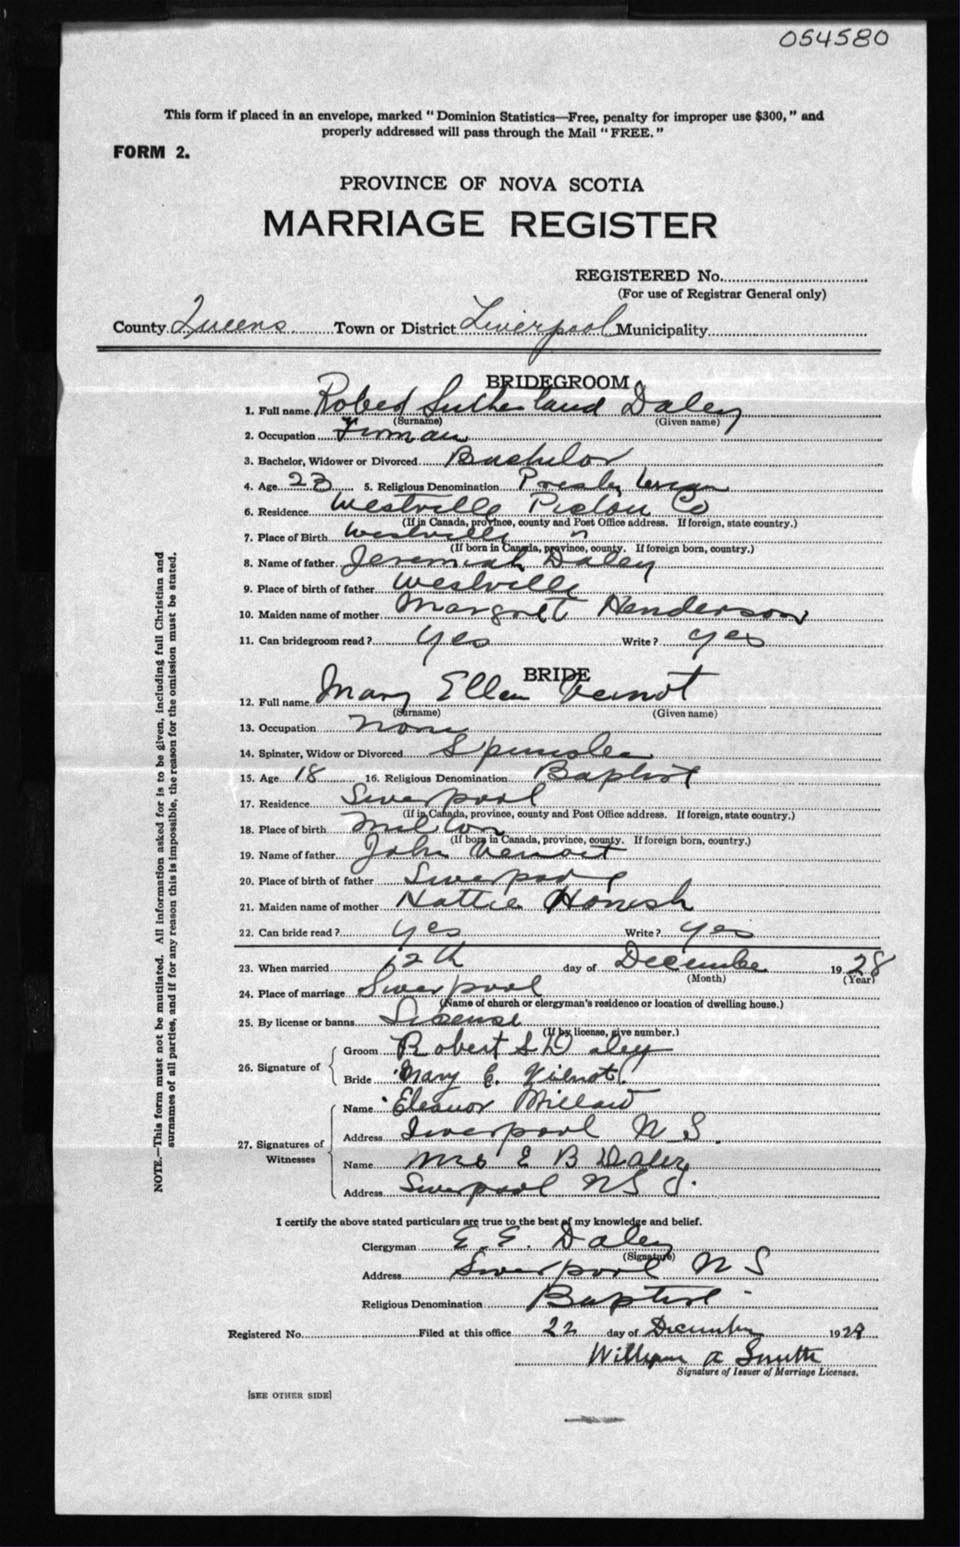 054580
This form if placed in an envelope, marked "Dominion Statistics—Free, penalty for improper use $300," and
properly addressed will pass through the Mail "FREE."
FORM 2.
PROVINCE OF NOVA SCOTIA
MARRIAGE REGISTER
REGISTERED No.
(For use of Registrar General only)
County Queens Town or District Liverpool Municipality
BRIDEGROOM
1. Full name Robert Sutherland Daley
(Surname) (Given name)
2. Occupation Firman
3. Bachelor, Widower or Divorced Bachelor
4. Age 23 5. Religious Denomination Presbyterian
6. Residence Westville Pictou Co
(If in Canada, province, county and Post Office address. If foreign, state country.)
7. Place of Birth Westville "
(If born in Canada, province, county. If foreign born, country.)
8. Name of father Jeremiah Daley
9. Place of birth of father Westville
10. Maiden name of mother Margret Henderson
11. Can bridegroom read? yes Write? yes
BRIDE
12. Full name Mary Ellen Veinot
(Surname) (Given name)
13. Occupation None
14. Spinster, Widow or Divorced Spinster
15. Age 18 16. Religious Denomination Baptist
17. Residence Liverpool
(If in Canada, province, county and Post Office address. If foreign, state country.)
18. Place of birth Milton
(If born in Canada, province, county. If foreign born, country.)
19. Name of father John Veinott
20. Place of birth of father Liverpool
21. Maiden name of mother Hattie
22. Can bride read? yes Write? yes
23. When married 12th day of December 1928
(Month) (Year)
24. Place of marriage Liverpool
(Name of church or clergyman's residence or location of dwelling house.)
25. By license or banns License
(If by license, give number.)
26. Signature of Groom Robert S Daley
Bride Mary E. Veinot
27. Signatures of Witnesses Name Eleanor Millard
Address Liverpool N S.
Name Mrs E B Daley
Address Liverpool N S
I certify the above stated particulars are true to the best of my knowledge and belief.
Clergyman E. E. Daley
(Signature)
Address Liverpool N S
Religious Denomination Baptist
Registered No. Filed at this office 22 day of December 1928
William A Smith
Signature of Issuer of Marriage Licenses.
[SEE OTHER SIDE]
NOTE.—This form must not be mutilated. All information asked for is to be given, including full Christian and
surnames of all parties, and if for any reason this is impossible, the reason for the omission must be stated.